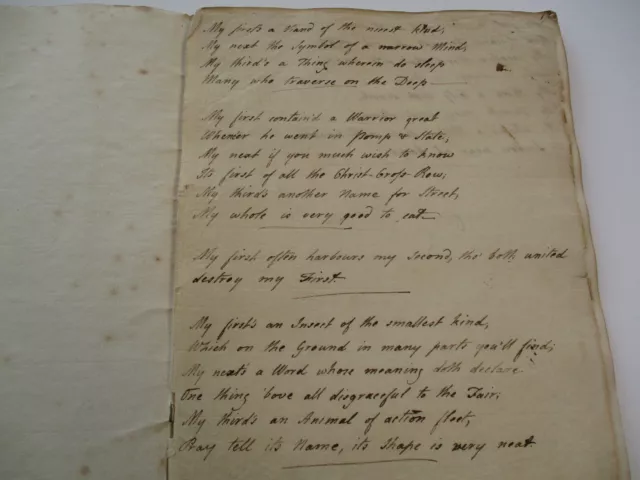 My first's a Band of the nicest kind;
My next the Symbol of a narrow Mind;
My third's a Thing wherein do sleep
Many who traverse on the Deep
My first contain'd a Warrior great
Whene'er he went in Pomp & State,
My next if you much wish to know
Its first of all the Christ-Cross Row;
My third's another Name for Street,
My whole is very good to eat
My first often harbours my Second, tho' both united
destroy my First.
My first's an Insect of the smallest kind,
Which on the Ground in many parts you'll find;
My next's a Word whose meaning doth declare
One thing 'bove all disgraceful to the Fair;
My third's an Animal of action fleet,
Pray tell its Name, its Shape is very neat